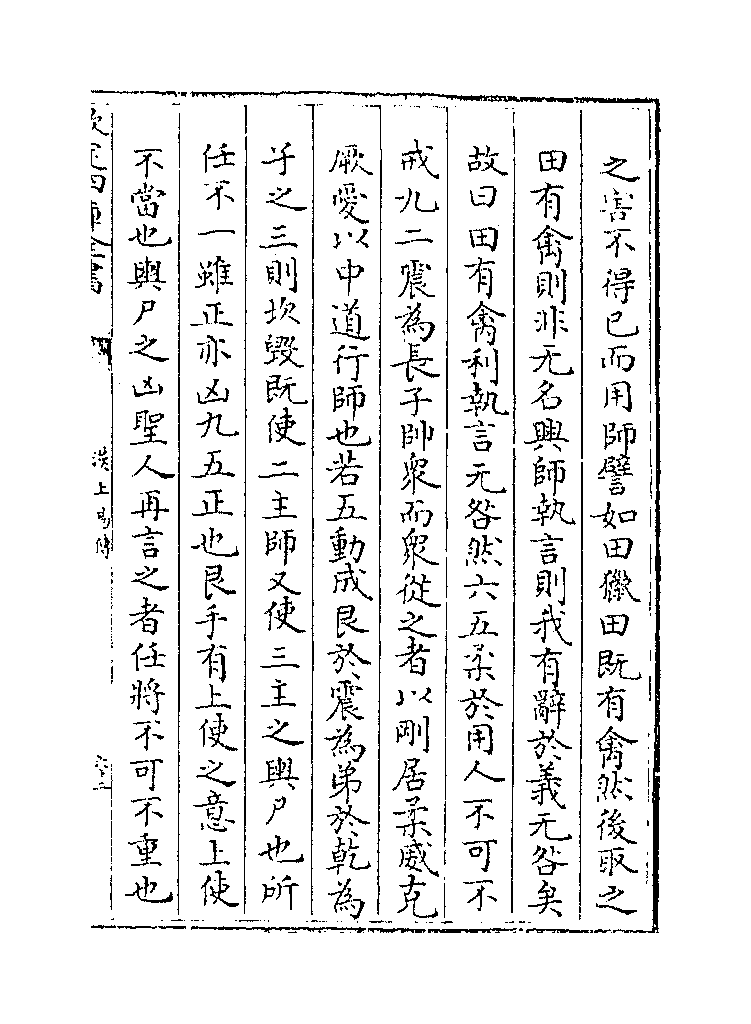 之害不得已而用師譬如田獵田既有禽然後取之
田有禽則非无名興師執言則我有辭於義无咎矣
故曰田有禽利執言无咎然六五柔於用人不可不
戒九二震為長子帥衆而衆從之者以剛居柔威克
厥愛以中道行師也若五動成艮於震為弟於乾為
子之三則坎毀既使二主師又使三主之輿尸也所
任不一雖正亦凶九五正也艮手有上使之意上使
不當也輿尸之凶聖人再言之者任將不可不重也
欽定四庫全書
漢上易傳